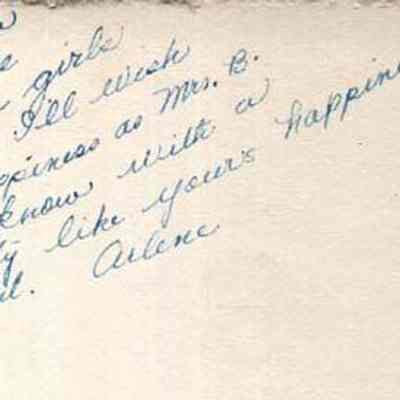 girls
I'll wish
ppiness as Mrs. B.
know with a
ty like yours happine
d. Arlene